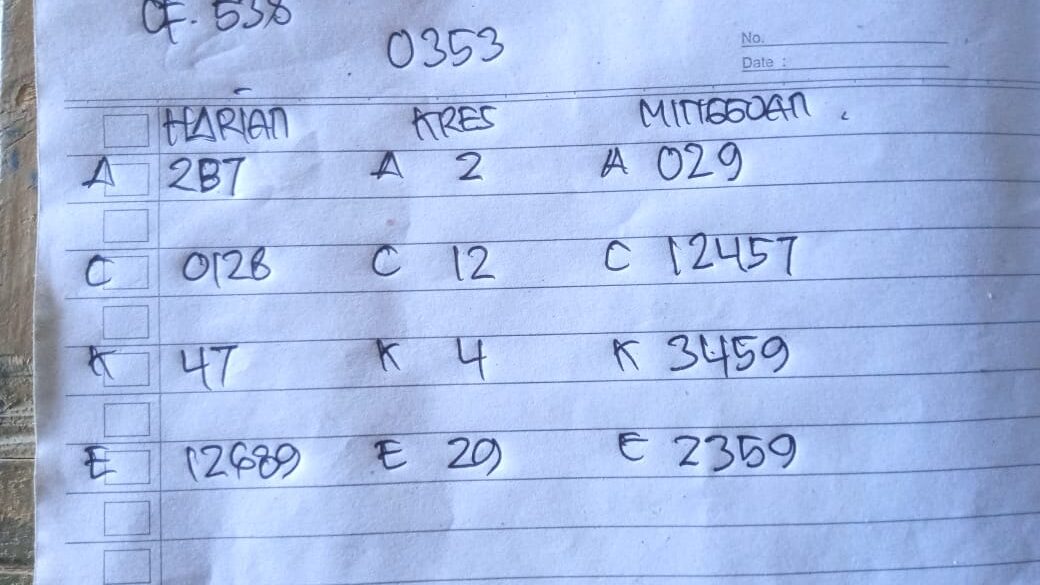 CF. 538
0353
No.
Date :
HARIAN KRES MINGGUAN
A 287 A 2 A 029
C 0128 C 12 C 12457
K 47 K 4 K 3459
E 12689 E 29 E 2359